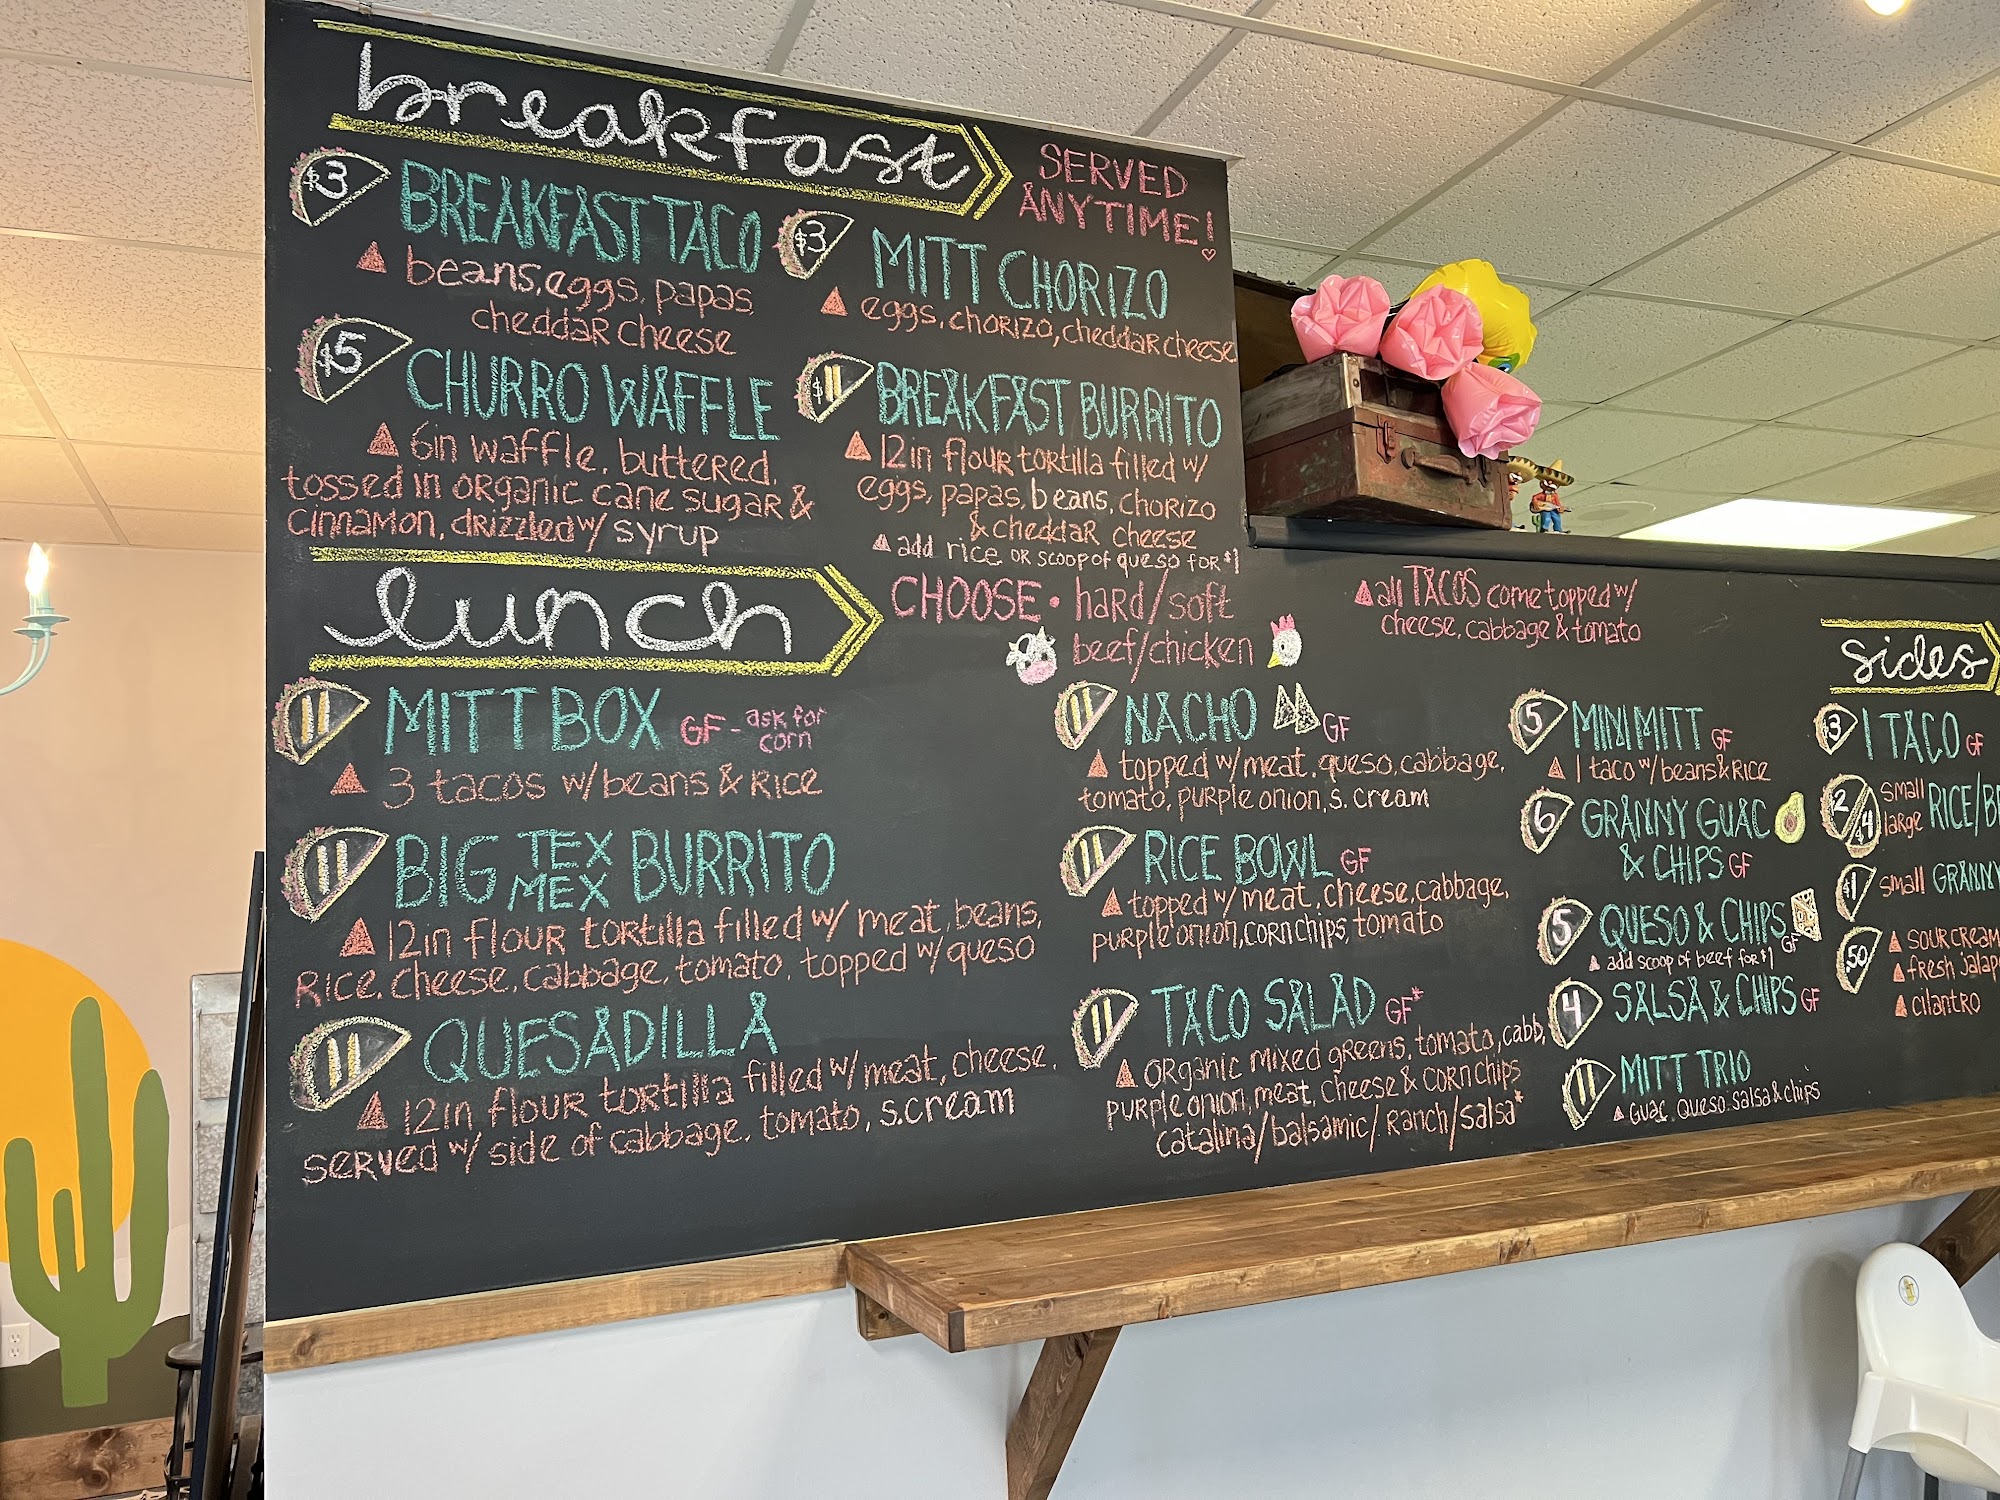 breakfast
SERVED
ANYTIME!
$3 BREAKFAST TACO
beans, eggs, papas,
cheddar cheese
$3 MITT CHORIZO
eggs, chorizo, cheddar cheese
$5 CHURRO WAFFLE
6in waffle, buttered,
tossed in organic cane sugar &
cinnamon, drizzled w/ syrup
$11 BREAKFAST BURRITO
12in flour tortilla filled w/
eggs, papas, beans, chorizo
& cheddar cheese
add rice or scoop of queso for $1
lunch
CHOOSE • hard/soft
beef/chicken
all TACOS come topped w/
cheese, cabbage & tomato
11 MITT BOX GF - ask for
corn
3 tacos w/ beans & rice
11 BIG TEX MEX BURRITO
12in flour tortilla filled w/ meat, beans,
rice, cheese, cabbage, tomato, topped w/ queso
11 QUESADILLA
12in flour tortilla filled w/ meat, cheese,
served w/ side of cabbage, tomato, s.cream
11 NACHO GF
topped w/ meat, queso, cabbage,
tomato, purple onion, s. cream
11 RICE BOWL GF
topped w/ meat, cheese, cabbage,
purple onion, corn chips, tomato
11 TACO SALAD GF*
organic mixed greens, tomato, cabb,
purple onion, meat, cheese & corn chips
catalina/balsamic/ranch/salsa*
5 MINI MITT GF
1 taco w/ beans & rice
6 GRANNY GUAC
& CHIPS GF
5 QUESO & CHIPS GF
add scoop of beef for $1
4 SALSA & CHIPS GF
11 MITT TRIO
guac, queso, salsa & chips
sides
$3 1 TACO GF
$2/$4 small
large RICE/B
$1 small GRANNY
.50 SOUR CREAM
fresh jalap
cilantro